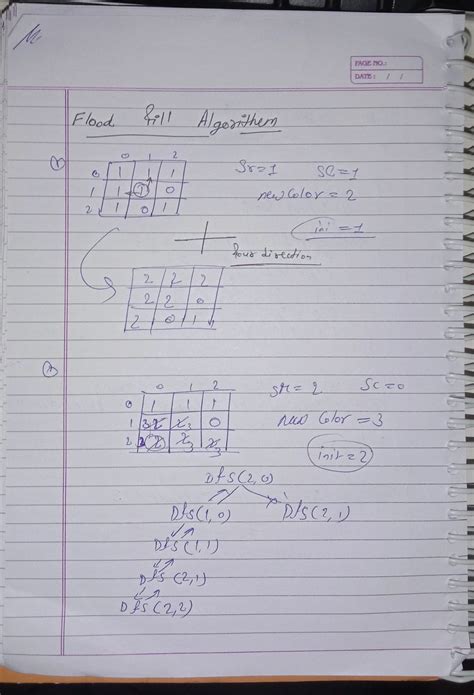 PAGE NO.:
DATE: / /
Flood fill Algorithem
1)
0 1 2
0 1 1 1 Sr=1 SC=1
1 1 1 0 newColor=2
2 1 0 1 ini=1
four direction
2 2 2
2 2 0
2 0 1
0 1 2
0 1 1 1 Sr=2 Sc=0
1 3 2 2 3 0 new Color=3
2 3 2 2 3 2 3 init=2
Dfs(2,0)
Dfs(1,0) Dfs(2,1)
Dfs(1,1)
Dfs(2,1)
Dfs(2,2)